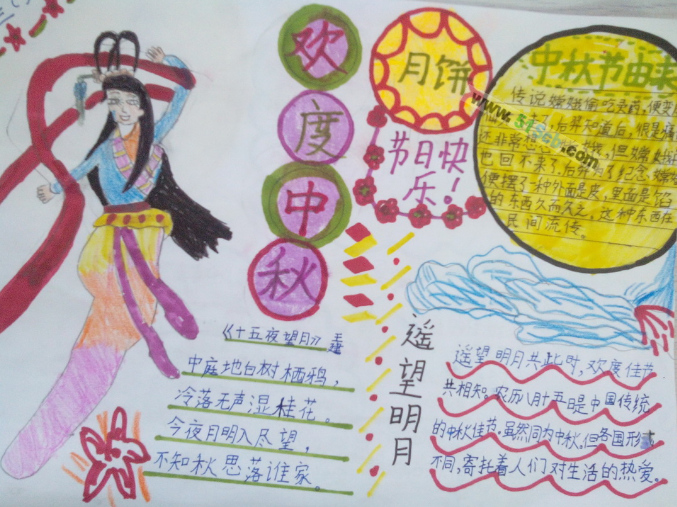 欢度中秋
月饼
节日快
乐！
中秋节由来
传说嫦娥偷吃灵药，便变
后羿知道后，
还非常
但嫦娥
也回不来了，后羿为了纪念嫦娥
便摆了一种外面是皮，里面是馅
的东西久而久之，这种东西在
民间流传。
www.51ssb.com
《十五夜望月》王建
中庭地白树栖鸦，
冷落无声湿桂花。
今夜月明人尽望，
不知秋思落谁家。
遥望明月
遥望明月共此时，欢度佳节
共相知。农历八月十五是中国传统
的中秋佳节，虽然同为中秋，但各国形式
不同，寄托着人们对生活的热爱。